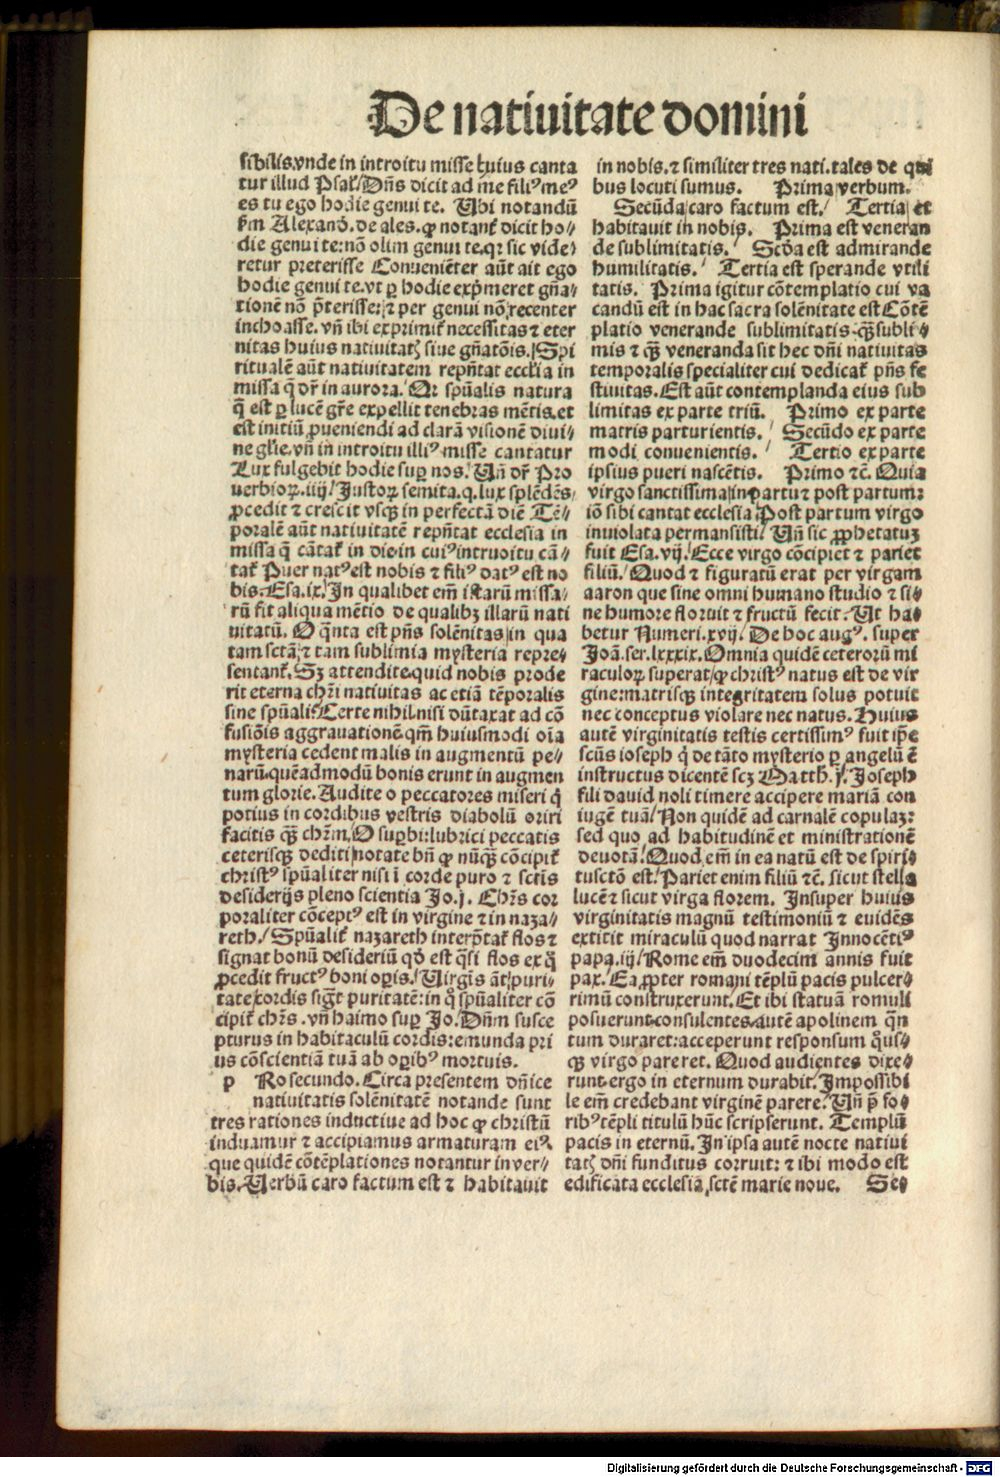 De natiuitate domini
sibilis.vnde in introitu misse huius canta
tur illud Psal̄/Dn̄s dicit ad me fili⁹me⁹
es tu ego hodie genui te. Ubi notandū
ẜm Alexand̄. de ales. ꝙ notanẗ dicit ho⸗
die genui te:nō olim genui te.qꝛ sic vide⸗
retur preterisse Conueniēter aūt ait ego
hodie genui te.vt ꝑ hodie exp̄meret gn̄a⸗
tionē nō p̄terisse:⁊ per genui nō recenter
inchoasse. vn̄ ibi exprimit̄ necessitas ⁊ eter
nitas huius natiuitatꝭ siue gn̄atōis. Spi
ritualē aūt natiuitatem rep̄ntat eccl̄ia in
missa q̄ dr̄ in aurora. Qꝛ spūalis natura
q̄ est ꝑ lucē gr̄e expellit tenebras mētis.et
est initiū ꝓueniendi ad clarā visionē diui⸗
ne gl̄ie.vn̄ in introitu illi⁹ misse cantatur
Lux fulgebit hodie suꝑ nos. Un̄ dr̄ Pro
uerbioꝝ.iiij/ Justoꝝ semita.q.lux splēdēs
ꝓcedit ⁊ crescit vsqꝫ in perfectā diē Tē⸗
poralē aūt natiuitatē rep̄ntat ecclesia in
missa q̄ cātat̄ in die in cui⁹intruoitu cā⸗
tat̄ Puer nat⁹est nobis ⁊ fili⁹ dat⁹ est no
bis.Esa.ix./In qualibet em̄ istarū missa⸗
rū fit aliqua mētio de qualibꝫ illarū nati
uitatū. O q̄nta est pn̄s solēnitas in qua
tam sctā ⁊ tam sublimia mysteria repre⸗
sentant̄. Sꝫ attendite quid nobis prode
rit eterna chr̄i natiuitas ac etiā tēporalis
sine spūali Certe nihil nisi dūtaxat ad cō
fusiōis aggrauationē qm̄ huiusmodi oīa
mysteria cedent malis in augmentū pe⸗
narū.quēadmodū bonis erunt in augmen
tum glorie. Audite o peccatores miseri q̄
potius in cordibus vestris diabolū oriri
facitis qꝫ chr̄m/O suꝑbi:lubrici peccatis
ceterisqꝫ dediti notate bn̄ ꝙ nūqꝫ cōcipit̄
christ⁹ spūaliter nisi ī corde puro ⁊ sctīs
desiderijs pleno scientia Jo.j. Chr̄s cor
poraliter cōcept⁹ est in virgine ⁊ in naza⸗
reth./ Spūalit̄ nazareth interp̄tat̄ flos ⁊
signat bonū desideriū qd̄ est q̄si flos ex q̄
ꝓcedit fruct⁹ boni oꝑis./Uirgīs āt puri⸗
tate cordis sigt̄ puritatē:in q̊ spūaliter cō
cipit̄ chr̄s .vn̄ haimo suꝑ Jo. Dn̄m susce
pturus in habitaculū cordis:emunda pri
us cōscientiā tuā ab oꝑib⁹ mortuis.
p Ro secundo. Circa presentem dn̄ice
natiuitatis solēnitatē notande sunt
tres rationes inductiue ad hoc ꝙ christū
induamur ⁊ accipiamus armaturam eiꝰ
que quidē cōtēplationes notantur in ver⸗
bis. Uerbū caro factum est ⁊ habitauit
in nobis.⁊ similiter tres nati.tales de qui
bus locuti sumus. Prima verbum.
Secūda caro factum est./ Tertia et
habitauit in nobis. Prima est veneran
de sublimitatis. Scd̄a est admirande
humilitatis. Tertia est sperande vtili
tatis. Prima igitur cōtemplatio cui va
candū est in hac sacra solēnitate est Cōtē
platio venerande sublimitatis qꝫ subli⸗
mis ⁊ qꝫ veneranda sit hec dn̄i natiuitas
temporalis specialiter cui dedicat̄ pn̄s fe
stiuitas.Est aūt contemplanda eius sub
limitas ex parte triū. Primo ex parte
matris parturientis. Secūdo ex parte
modi conuenientis. Tertio ex parte
ipsius pueri nascētis. Primo ⁊c̄. Quia
virgo sanctissima in partu ⁊ post partum:
iō sibi cantat ecclesia Post partum virgo
inuiolata permansisti/ Un̄ sic ꝓphetatuꝫ
fuit Esa.vij./Ecce virgo cōcipiet ⁊ pariet
filiū./Quod ⁊ figuratū erat per virgam
aaron que sine omni humano studio ⁊ si⸗
ne humore floruit ⁊ fructū fecit. Ut ha⸗
betur Numeri.xvij/ De hoc aug⁹. super
Joā.ser.lxxxix.Omnia quidē ceterorū mi
raculoꝝ superat ꝙ christ⁹ natus est de vir
gine:matrisqꝫ integritatem solus potuit
nec conceptus violare nec natus. Huius
autē virginitatis testis certissim⁹ fuit ip̄e
scūs ioseph q̄ de tāto mysterio ꝑ angelū ē
instructus dicentē scꝫ Matth.j./ Joseph
fili dauid noli timere accipere mariā con
iugē tuā/ Non quidē ad carnalē copulaꝫ:
sed quo ad habitudinē et ministrationē
deuotā. Quod em̄ in ea natū est de spiri⸗
tusctō est. Pariet enim filiū ⁊c̄. sicut stella
lucē ⁊ sicut virga florem. Insuper huius
virginitatis magnū testimoniū ⁊ euidēs
extitit miraculū quod narrat Innocēti⁹
papa.iij/ Rome em̄ duodecim annis fuit
pax. Ea ꝓpter romani tēplū pacis pulcer⸗
rimū construxerunt. Et ibi statuā romuli
posuerunt.consulentes autē apolinem q̄n
tum duraret:acceperunt responsum q̊us⸗
qꝫ virgo pareret. Quod audientes dixe⸗
runt ergo in eternum durabit. Impossibi
le em̄ credebant virginē parere. Un̄ p̄ fo⸗
rib⁹tēpli titulū hūc scripserunt. Templū
pacis in eternū. In ipsa autē nocte natiui
tatꝭ dn̄i funditus corruit: ⁊ ibi modo est
edificata ecclesia sctē marie noue. Se⸗
Digitalisierung gefördert durch die Deutsche Forschungsgemeinschaft - DFG